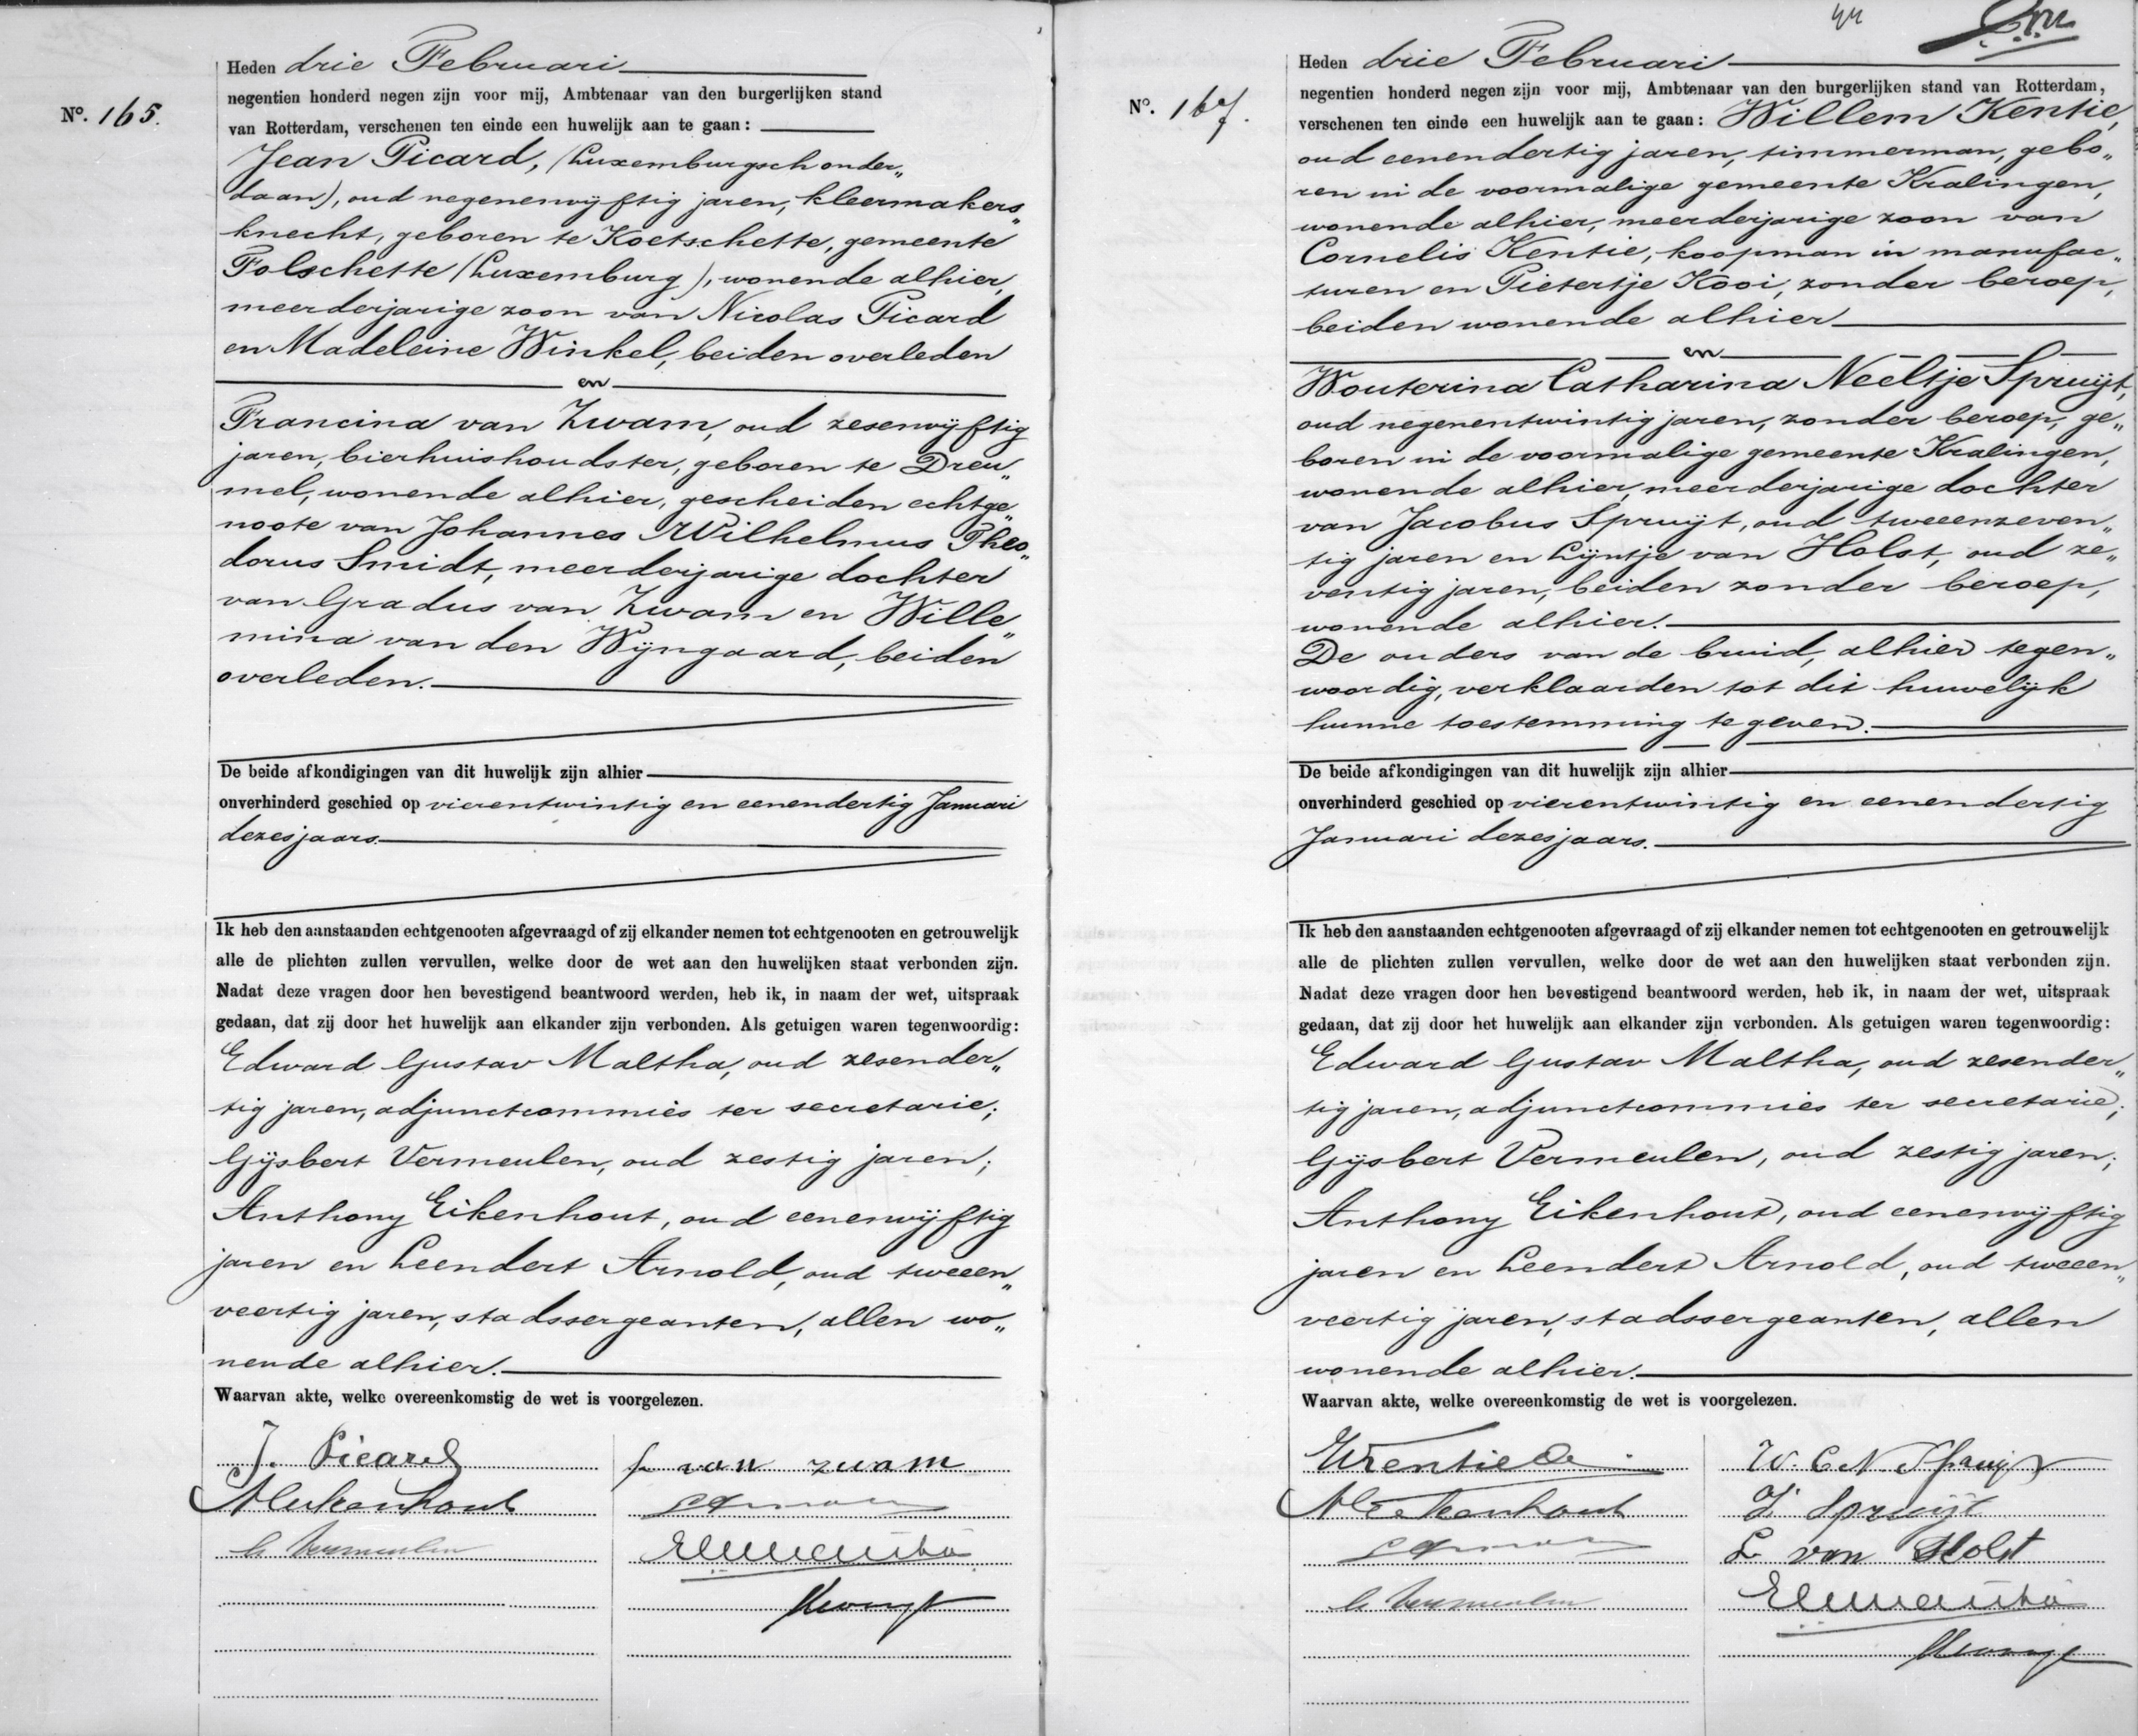 Heden drie Februari
negentien honderd negen zijn voor mij, Ambtenaar van den burgerlijken stand
No. 165.
van Rotterdam, verschenen ten einde een huwelijk aan te gaan:
Jean Picard, (Luxemburgsch onder„
daan), oud negenenvijftig jaren, kleermakers„
knecht, geboren te Koetschette, gemeente
Folschette (Luxemburg), wonende alhier,
meerderjarige zoon van Nicolas Picard
en Madeleine Winkel, beiden overleden
en
Francina van Zwam, oud zesenvijftig
jaren, bierhuishoudster, geboren te Dreu„
mel, wonende alhier, gescheiden echtge„
noote van Johannes Wilhelmus Theo„
dorus Smidt, meerderjarige dochter
van Gradus van Zwam en Wille„
mina van den Wijngaard, beiden
overleden.
De beide afkondigingen van dit huwelijk zijn alhier
onverhinderd geschied op vierentwintig en eenendertig Januari
dezes jaars.
Ik heb den aanstaanden echtgenooten afgevraagd of zij elkander nemen tot echtgenooten en getrouwelijk
alle de plichten zullen vervullen, welke door de wet aan den huwelijken staat verbonden zijn.
Nadat deze vragen door hen bevestigend beantwoord werden, heb ik, in naam der wet, uitspraak
gedaan, dat zij door het huwelijk aan elkander zijn verbonden. Als getuigen waren tegenwoordig:
Edward Gustav Maltha, oud zesender„
tig jaren, adjunctcommies ter secretarie;
Gijsbert Vermeulen, oud zestig jaren;
Anthony Eikenhout, oud eenenvijftig
jaren en Leendert Arnold, oud tweeen„
veertig jaren, stadssergeanten, allen wo„
nende alhier.
Waarvan akte, welke overeenkomstig de wet is voorgelezen.
J. Picard
f van zwam
A Eikenhout
L Arnold
G Vermeulen
EGMaltha
44
Heden drie Februari
negentien honderd negen zijn voor mij, Ambtenaar van den burgerlijken stand van Rotterdam,
No. 167.
verschenen ten einde een huwelijk aan te gaan: Willem Kentie,
oud eenendertig jaren, timmerman, gebo„
ren in de voormalige gemeente Kralingen,
wonende alhier, meerderjarige zoon van
Cornelis Kentie, koopman in manufac„
turen en Pietertje Kooi, zonder beroep,
beiden wonende alhier
en
Wouterina Catharina Neeltje Spruijt,
oud negenentwintig jaren, zonder beroep, ge„
boren in de voormalige gemeente Kralingen,
wonende alhier, meerderjarige dochter
van Jacobus Spruijt, oud tweeenzeven„
tig jaren en Lijntje van Holst, oud ze„
ventig jaren, beiden zonder beroep,
wonende alhier.
De ouders van de bruid, alhier tegen„
woordig, verklaarden tot dit huwelijk
hunne toestemming te geven.
De beide afkondigingen van dit huwelijk zijn alhier
onverhinderd geschied op vierentwintig en eenendertig
Januari dezes jaars.
Ik heb den aanstaanden echtgenooten afgevraagd of zij elkander nemen tot echtgenooten en getrouwelijk
alle de plichten zullen vervullen, welke door de wet aan den huwelijken staat verbonden zijn.
Nadat deze vragen door hen bevestigend beantwoord werden, heb ik, in naam der wet, uitspraak
gedaan, dat zij door het huwelijk aan elkander zijn verbonden. Als getuigen waren tegenwoordig:
Edward Gustav Maltha, oud zesender„
tig jaren, adjunctcommies ter secretarie;
Gijsbert Vermeulen, oud zestig jaren;
Anthony Eikenhout, oud eenenvijftig
jaren en Leendert Arnold, oud tweeen„
veertig jaren, stadssergeanten, allen
wonende alhier.
Waarvan akte, welke overeenkomstig de wet is voorgelezen.
W Kentie
W. C N. Spruijt
A Eikenhout
J Spruijt
L Arnold
L van Holst
G Vermeulen
EGMaltha